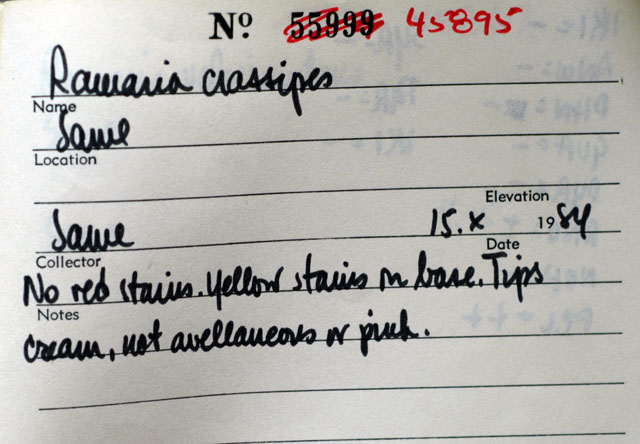 No. 55999 45895
Ramaria crassipes
Name
Same
Location
Elevation
Same 15.X 1984
Collector Date
No red stains. Yellow stains on base. Tips
Notes
cream, not avellaneous or pink.